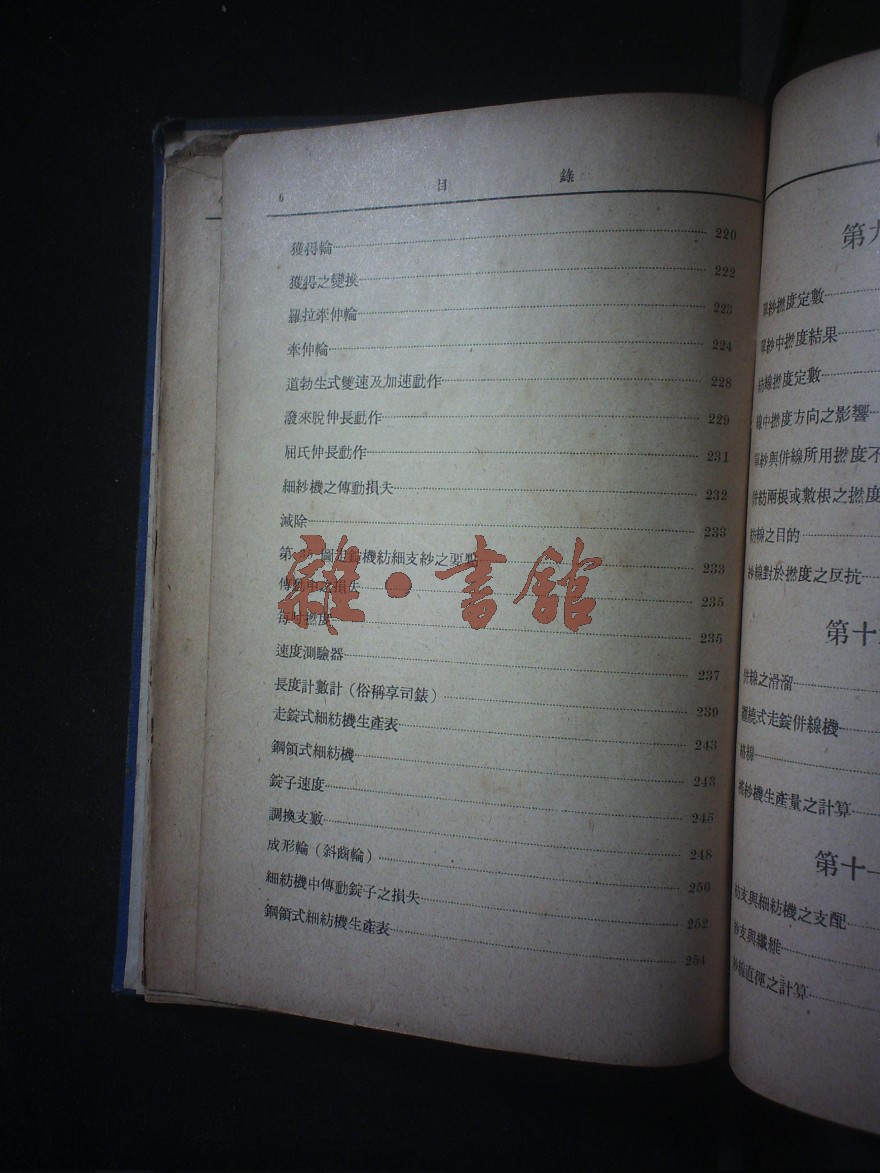 6 目 錄
獲得輪 220
獲得之變換 222
羅拉牽伸輪 223
牽伸輪 224
道勃生式雙速及加速動作 228
潑來脫伸長動作 229
屈氏伸長動作 231
細紗機之傳動損失 232
減除 233
圖走錠機紡細支紗之要點 233
傳動中之損失 235
每吋撚度 235
速度測驗器 237
長度計數計（俗稱享司錶） 239
走錠式細紡機生產表 243
鋼領式細紡機 243
錠子速度 245
調換支數 248
成形輪（斜齒輪） 250
細紡機中傳動錠子之損失 252
鋼領式細紡機生產表 254
雜·書館
第九
單紗撚度定數
單紗中撚度結果
紡線撚度定數
線中撚度方向之影響
單紗與併線所用撚度不
併紡兩根或數根之撚度
紡線之目的
紗線對於撚度之反抗
第十
併線之滑溜
纏繞式走錠併線機
捲紗機生產量之計算
第十一
紡支與細紡機之支配
紗支與纖維
紗線直徑之計算